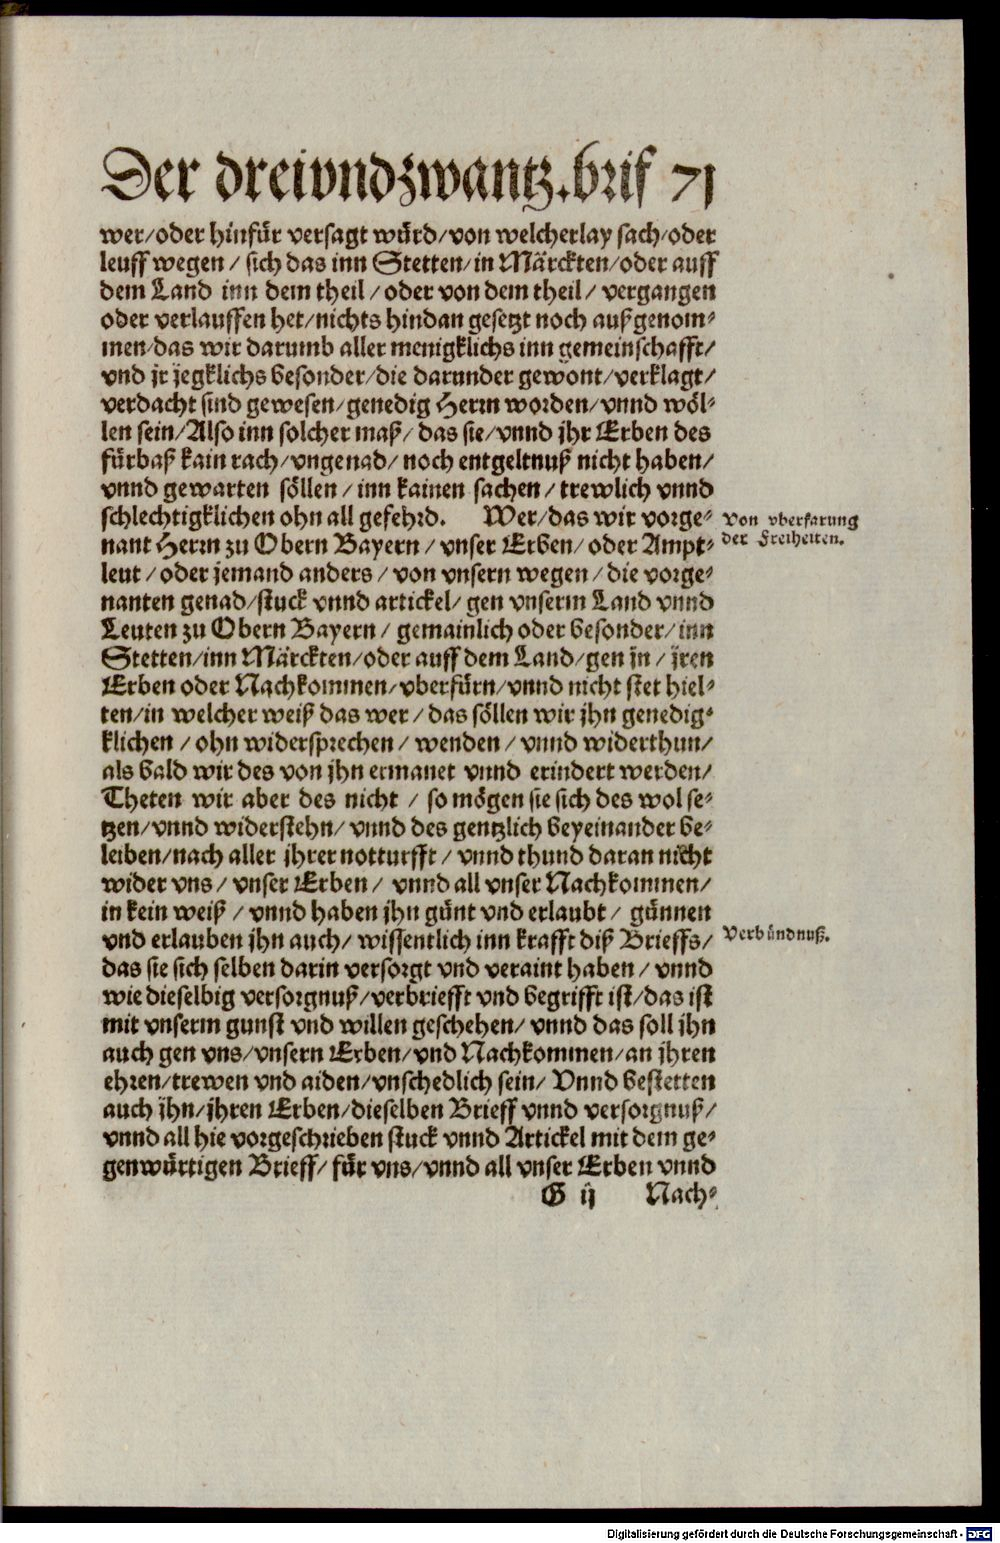 Der dreivndzwantz.brif 71
wer/oder hinfür versagt würd/von welcherlay sach/oder
leuff wegen / sich das inn Stetten/in Märckten/oder auff
dem Land inn dem theil / oder von dem theil / vergangen
oder verlauffen het/nichts hindan gesetzt noch außgenom-
men/das wir darumb aller menigklichs inn gemeinschafft/
vnd jr jegklichs besonder/die darunder gewont/verklagt/
verdacht sind gewesen/genedig Herrn worden/vnnd wöl-
len sein/Also inn solcher maß/das sie/vnnd jhr Erben des
fürbaß kain rach/vngenad/noch entgeltnuß nicht haben/
vnnd gewarten söllen/inn kainen sachen/trewlich vnnd
schlechtigklichen ohn all gefehrd. Wer/das wir vorge-
Von vberfarung
nant Herrn zu Obern Bayern/vnser Erben/oder Ampt-
der Freiheiten.
leut/oder jemand anders/von vnsern wegen/die vorge-
nanten genad/stuck vnnd artickel/gen vnserm Land vnnd
Leuten zu Obern Bayern/gemainlich oder besonder/inn
Stetten/inn Märckten/oder auff dem Land/gen jn/jren
Erben oder Nachkommen/vberfürn/vnnd nicht stet hiel-
ten/in welcher weiß das wer/das söllen wir jhn genedig-
klichen/ohn widersprechen/wenden/vnnd widerthun/
als bald wir des von jhn ermanet vnnd erindert werden/
Theten wir aber des nicht/so mögen sie sich des wol se-
tzen/vnnd widerstehn/vnnd des gentzlich beyeinander be-
leiben/nach aller jhrer notturfft/vnnd thund daran nicht
wider vns/vnser Erben/vnnd all vnser Nachkommen/
in kein weiß/vnnd haben jhn günt vnd erlaubt/günnen
vnd erlauben jhn auch/wissentlich inn krafft diß Brieffs/
Verbündnuß.
das sie sich selben darin versorgt vnd veraint haben/vnnd
wie dieselbig versorgnuß/verbriefft vnd begrifft ist/das ist
mit vnserm gunst vnd willen geschehen/vnnd das soll jhn
auch gen vns/vnsern Erben/vnd Nachkommen/an jhren
ehren/trewen vnd aiden/vnschedlich sein/Vnnd bestetten
auch jhn/jhren Erben/dieselben Brieff vnnd versorgnuß/
vnnd all hie vorgeschrieben stuck vnnd Artickel mit dem ge-
genwürtigen Brieff/für vns/vnnd all vnser Erben vnnd
G ij Nach-
Digitalisierung gefördert durch die Deutsche Forschungsgemeinschaft - DFG